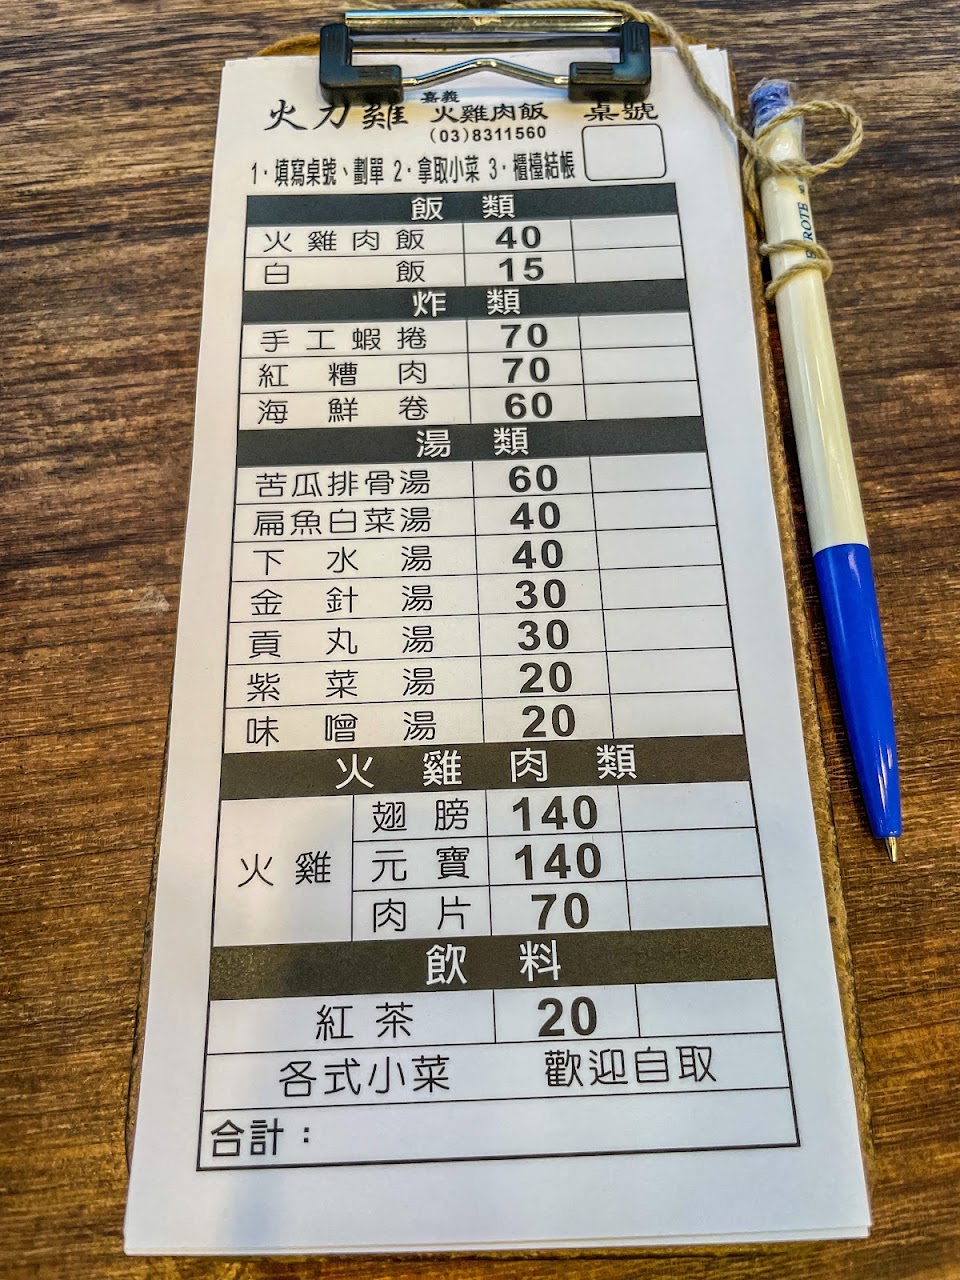 火力雞 嘉義 火雞肉飯 桌號
(03)8311560
1．填寫桌號、劃單 2．拿取小菜 3．櫃檯結帳
飯類
火雞肉飯 40
白飯 15
炸類
手工蝦捲 70
紅糟肉 70
海鮮卷 60
湯類
苦瓜排骨湯 60
扁魚白菜湯 40
下水湯 40
金針湯 30
貢丸湯 30
紫菜湯 20
味噌湯 20
火雞肉類
火雞
翅膀 140
元寶 140
肉片 70
飲料
紅茶 20
各式小菜 歡迎自取
合計：